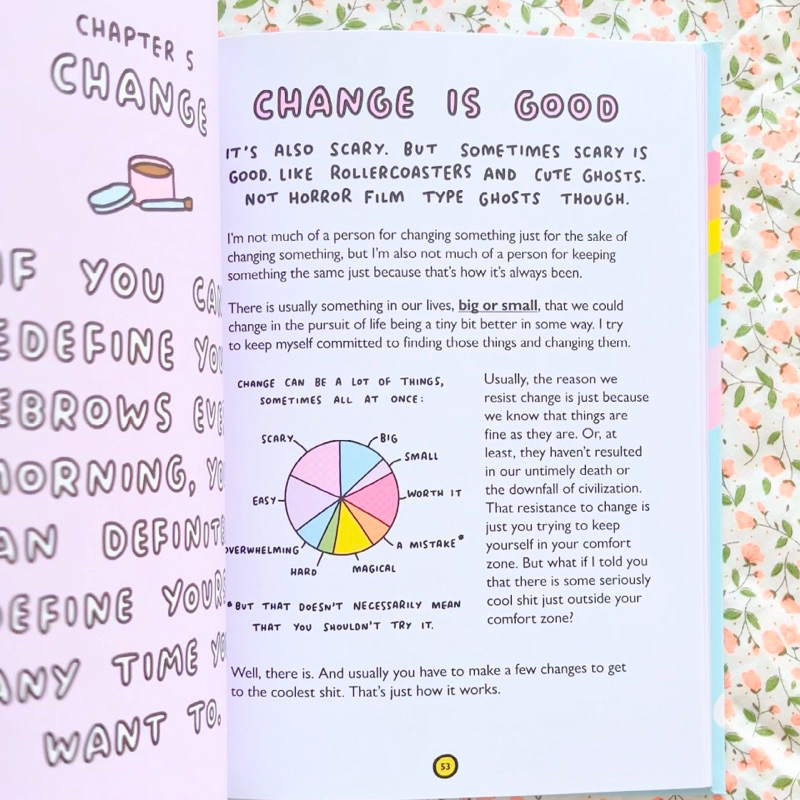 CHAPTER 5
CHANGE
IF YOU
YOU
EBROWS
MORNING,
DEFINE
ANY TIME
WANT TO.
CHANGE IS GOOD
IT'S ALSO SCARY. BUT SOMETIMES SCARY IS
GOOD. LIKE ROLLERCOASTERS AND CUTE GHOSTS.
NOT HORROR FILM TYPE GHOSTS THOUGH.
I'm not much of a person for changing something just for the sake of
changing something, but I'm also not much of a person for keeping
something the same just because that's how it's always been.
There is usually something in our lives, big or small, that we could
change in the pursuit of life being a tiny bit better in some way. I try
to keep myself committed to finding those things and changing them.
CHANGE CAN BE A LOT OF THINGS,
SOMETIMES ALL AT ONCE:
SCARY
BIG
SMALL
EASY
WORTH IT
OVERWHELMING
A MISTAKE*
HARD
MAGICAL
*BUT THAT DOESN'T NECESSARILY MEAN
THAT YOU SHOULDN'T TRY IT.
Usually, the reason we
resist change is just because
we know that things are
fine as they are. Or, at
least, they haven't resulted
in our untimely death or
the downfall of civilization.
That resistance to change is
just you trying to keep
yourself in your comfort
zone. But what if I told you
that there is some seriously
cool shit just outside your
comfort zone?
Well, there is. And usually you have to make a few changes to get
to the coolest shit. That's just how it works.
53